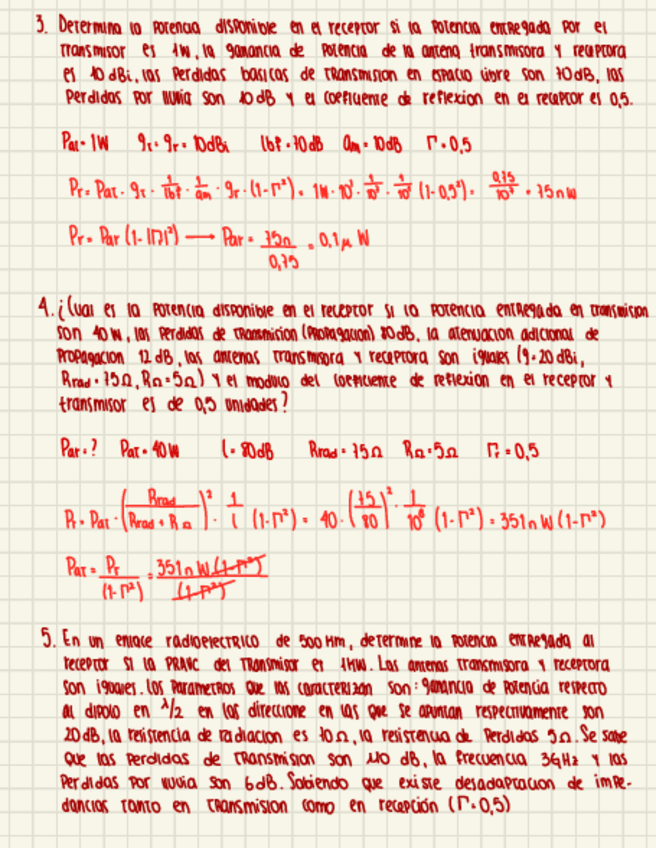 3. Determina la potencia disponible en el receptor si la potencia entregada por el
transmisor es 1W, la ganancia de potencia de la antena transmisora y receptora
es 10 dBi, las perdidas basicas de transmision en espacio libre son 70dB, las
perdidas por lluvia son 10dB y el coeficiente de reflexion en el receptor es 0,5.
Par= 1W gt= gr= 10dBi lbf= 70dB am= 10dB Γ= 0,5
Pr= Pat · gt · 1/lbf · 1/am · gr · (1-Γ²)= 1W · 10¹ · 1/10⁷ · 1/10¹ (1-0,5²)= 0,75/10⁷ = 75nW
Pr= Par (1-|Γ|²) → Par= 75n/0,75 = 0,1μW
4. ¿Cual es la potencia disponible en el receptor si la potencia entregada en transmision
son 40W, las perdidas de transmision (propagacion) 80dB, la atenuacion adicional de
propagacion 12 dB, las antenas transmisora y receptora son iguales (g=20 dBi,
Rrad=75Ω, RΩ=5Ω) y el modulo del coeficiente de reflexion en el receptor y
transmisor es de 0,5 unidades?
Par=? Pat= 40W l= 80dB Rrad= 75Ω RΩ= 5Ω Γ= 0,5
Pr= Pat · (Rrad/(Rrad + RΩ))² · 1/l (1-Γ²)= 40 · (75/80)² · 1/10⁸ (1-Γ²)= 351nW (1-Γ²)
Par= Pr/(1-Γ²) = 351nW (1-Γ²)/(1-Γ²)
5. En un enlace radioelectrico de 500 Km, determine la potencia entregada al
receptor si la PRAVC del transmisor es 1KW. Las antenas transmisora y receptora
son iguales. Los parametros que las caracterizan son: ganancia de potencia respecto
al dipolo en λ/2 en las direccione en las que se apuntan respectivamente son
20dB, la resistencia de radiacion es 70Ω, la resistencia de perdidas 5Ω. Se sabe
que las perdidas de transmision son 110 dB, la frecuencia 3GHz y las
perdidas por lluvia son 6dB. Sabiendo que existe desadaptacion de impe-
dancias tanto en transmision como en recepción (Γ=0,5)